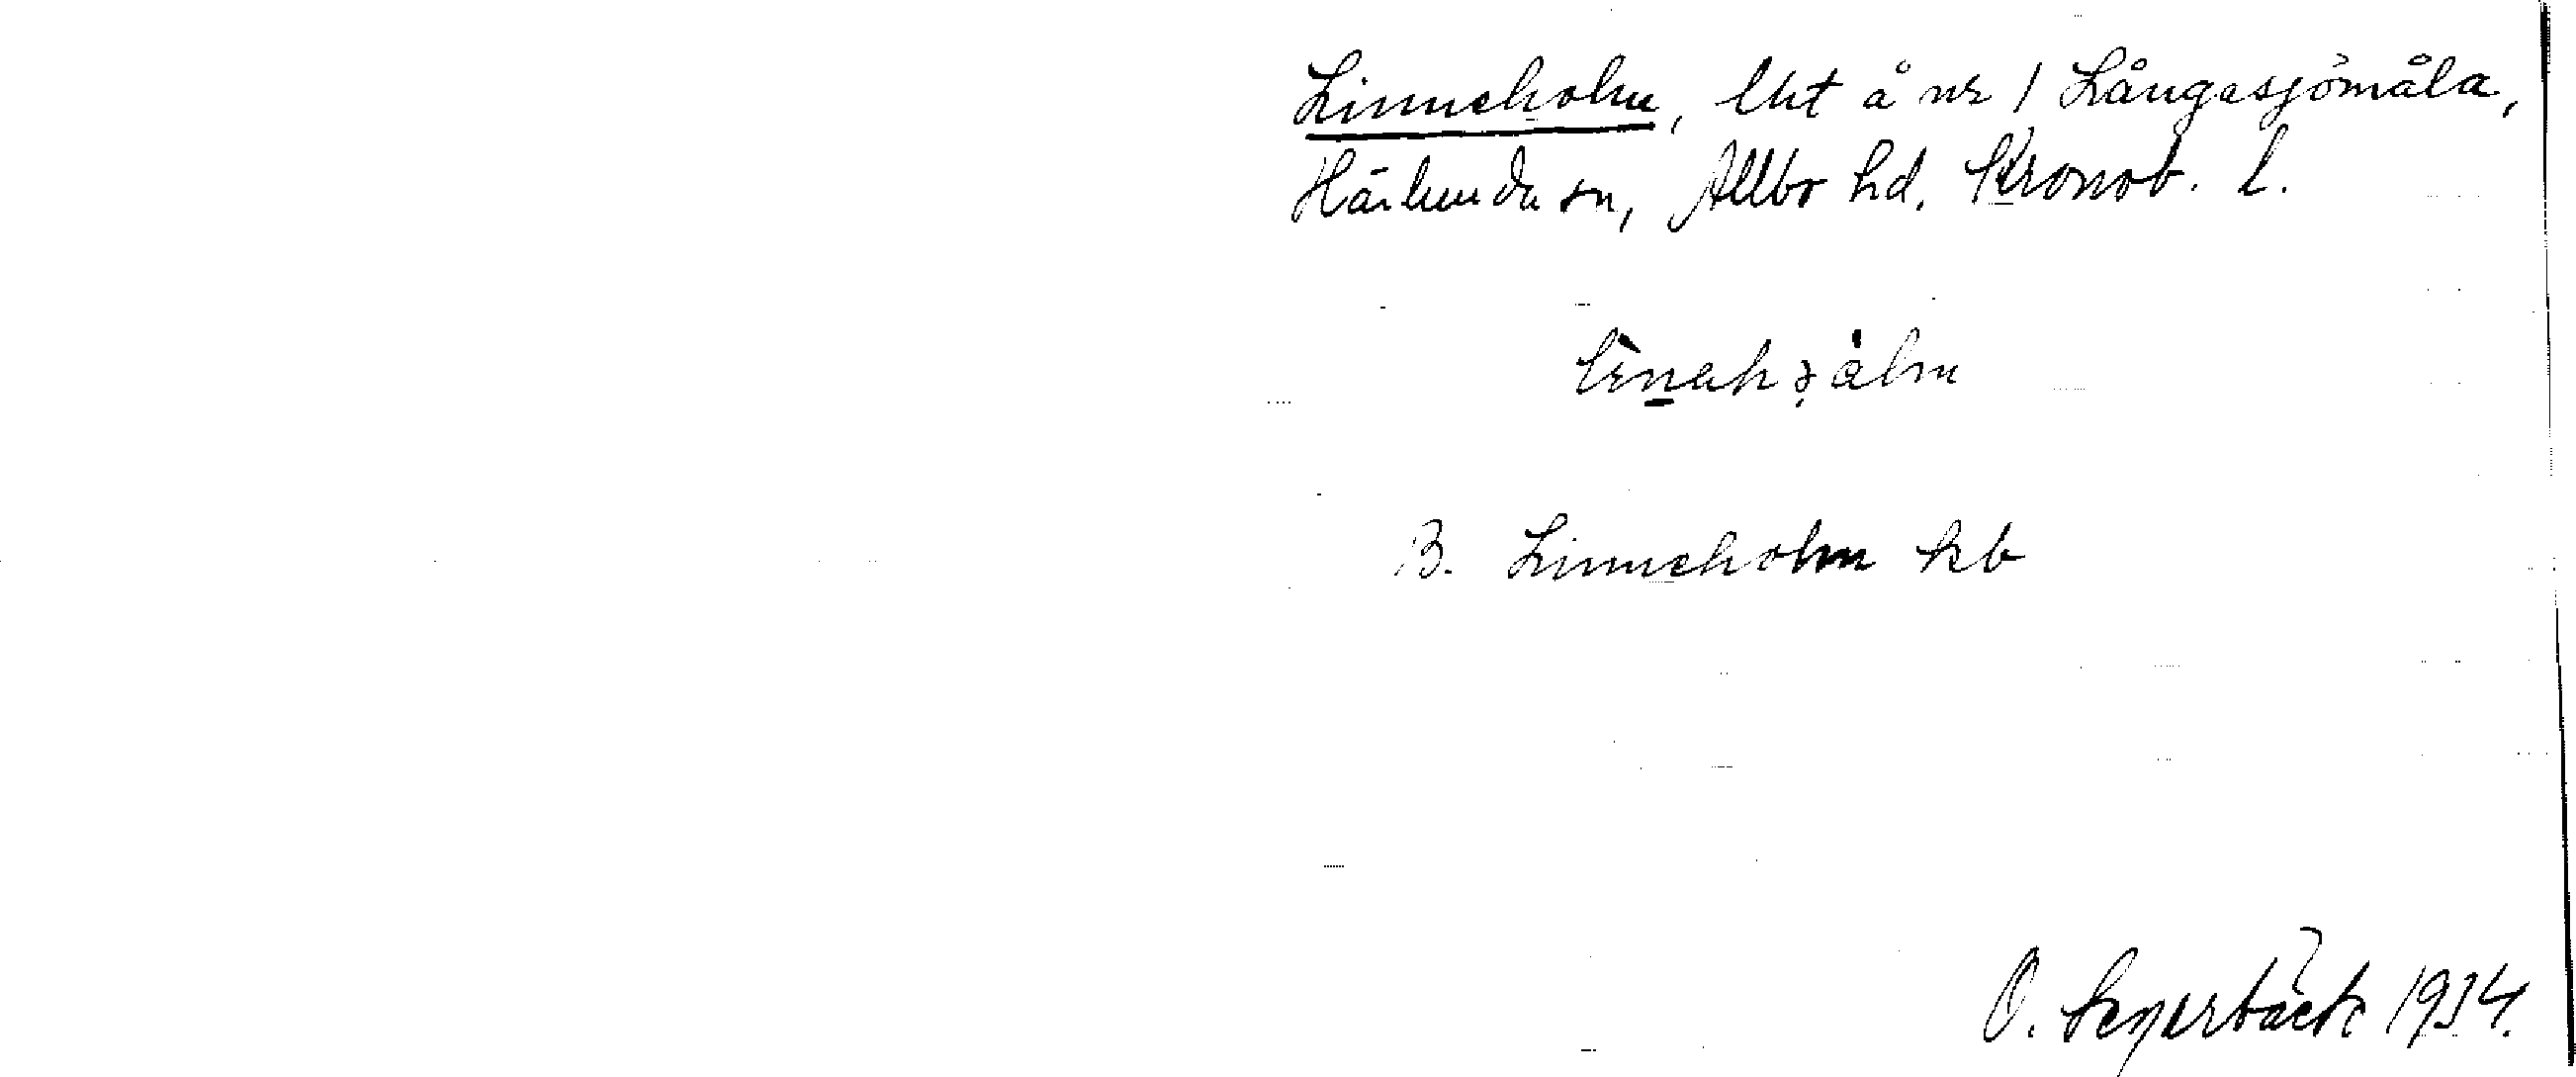 Linneholm, lht å nr 1 Långasjömåla,
Härlunda sn, Allbo hd. Kronob. l.
B. Linneholm kb
O. Segerbäck 1934.